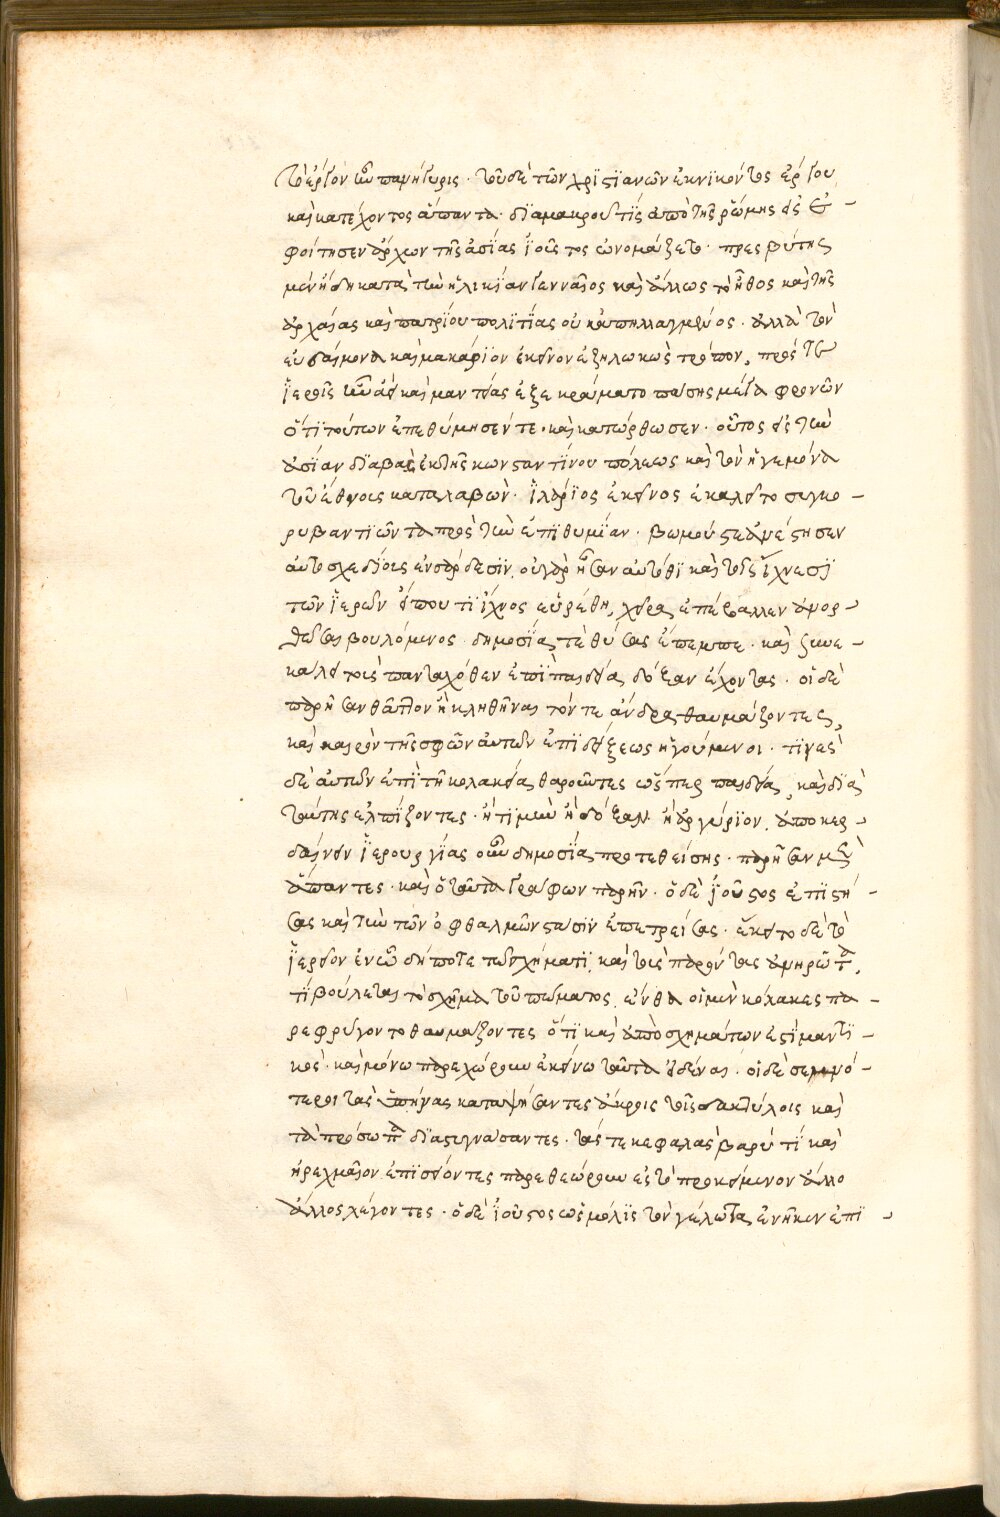 τὸ ἔργον ἦν πανήγυρις· τοῦ δὲ τῶν χριστιανῶν ἐκνικῶντος ἔργου
καὶ κατέχοντος ἅπαντα· διὰ μακροῦ τις ἀπὸ τῆς ῥώμης εἰσε-
φοίτησεν ἄρχων τῆς ἀσίας ἰοῦστος ὠνομάζετο· πρεσβύτης
μὲν ἤδη κατὰ τὴν ἡλικίαν γενναῖος καὶ ἄλλως τὸ ἦθος καὶ τῆς
ἀρχαίας καὶ πατρίου πολιτείας οὐκ ἀπηλλαγμένος· ἀλλὰ τὸν
εὐδαίμονα καὶ μακάριον ἐκεῖνον ἐζηλωκὼς τρόπον, πρός τε
ἱεροῖς ἦν ἀεὶ καὶ μαντείας ἐξεκρέματο πάσης μέγα φρονῶν
ὅτι τούτων ἐπεθύμησέν τε· καὶ κατώρθωσεν· οὗτος εἰς τὴν
ἀσίαν διαβὰς ἐκ τῆς κωνσταντίνου πόλεως καὶ τὸν ἡγεμόνα
τοῦ ἔθνους καταλαβὼν· ἱλάριος ἐκεῖνος ἐκαλεῖτο συγκο-
ρυβαντιῶντα πρὸς τὴν ἐπιθυμίαν· βωμούς τε ἀνέστησεν
αὐτοσχεδίους ἐν σάρδεσιν, οὐ γὰρ ἦσαν αὐτόθι καὶ τοῖς ἴχνεσι
τῶν ἱερῶν εἴπου τι ἴχνος εὑρέθη, χεῖρα ἐπέβαλλεν ἀνορ-
θῶσαι βουλόμενος· δημοσίᾳ τε θύσας ἔπεμπε· καὶ συνε-
κάλει τοὺς πανταχόθεν ἐπὶ παιδείᾳ δόξαν ἔχοντας· οἱ δὲ
παρῆσαν θᾶττον ἢ κληθῆναι τόν τε ἄνδρα θαυμάζοντες,
καὶ καιρὸν τῆς σφῶν αὐτῶν ἐπιδείξεως ἡγούμενοι· τινὲς
δὲ αὐτῶν ἐπὶ τῇ κολακείᾳ θαροῦντες ὥσπερ παιδείᾳ, καὶ διὰ
ταύτης ἐλπίζοντες· ἢ τιμὴν ἢ δόξαν ἢ ἀργύριον, ἀποκερ-
δαίνειν ἱερουργίας οὖν δημοσίᾳ προτεθείσης· παρῆσαν μὲν
ἅπαντες· καὶ ὁ ταῦτα γράφων παρῆν· ὁ δὲ ἰοῦστος ἐπιστή-
σας καὶ τὴν τῶν ὀφθαλμῶν στάσιν ἐπερείσας· ἔκειτο δὲ τὸ
ἱερεῖον ἐν ᾧ δήποτε τῷ σχήματι, καὶ τοὺς παρόντας ἀνηρώτα,
τί βούλεται τὸ σχῆμα τοῦ πτώματος, ἔνθα οἱ μὲν κόλακες πα-
ρεφρύγοντο θαυμάζοντες ὅτι καὶ ἀπὸ σχημάτων ἐστὶ μαντι-
κὸς· καὶ μόνῳ παρεχώρουν ἐκείνῳ ταῦτα εἰδέναι· οἱ δὲ σεμνό-
τεροι τὰς ὑπήνας καταψήσαντες ἄκροις τοῖς δακτύλοις καὶ
τὰ πρόσωπα διαστυγνάσαντες· τάς τε κεφαλὰς βαρύ τι καὶ
ἠρεμαῖον ἐπισείοντες παρεθεώρουν εἰς τὸ προκείμενον ἄλλο
ἄλλος λέγοντες· ὁ δὲ ἰοῦστος ὡς μόλις τὸν γέλωτα ἐνῆκεν ἐπι-